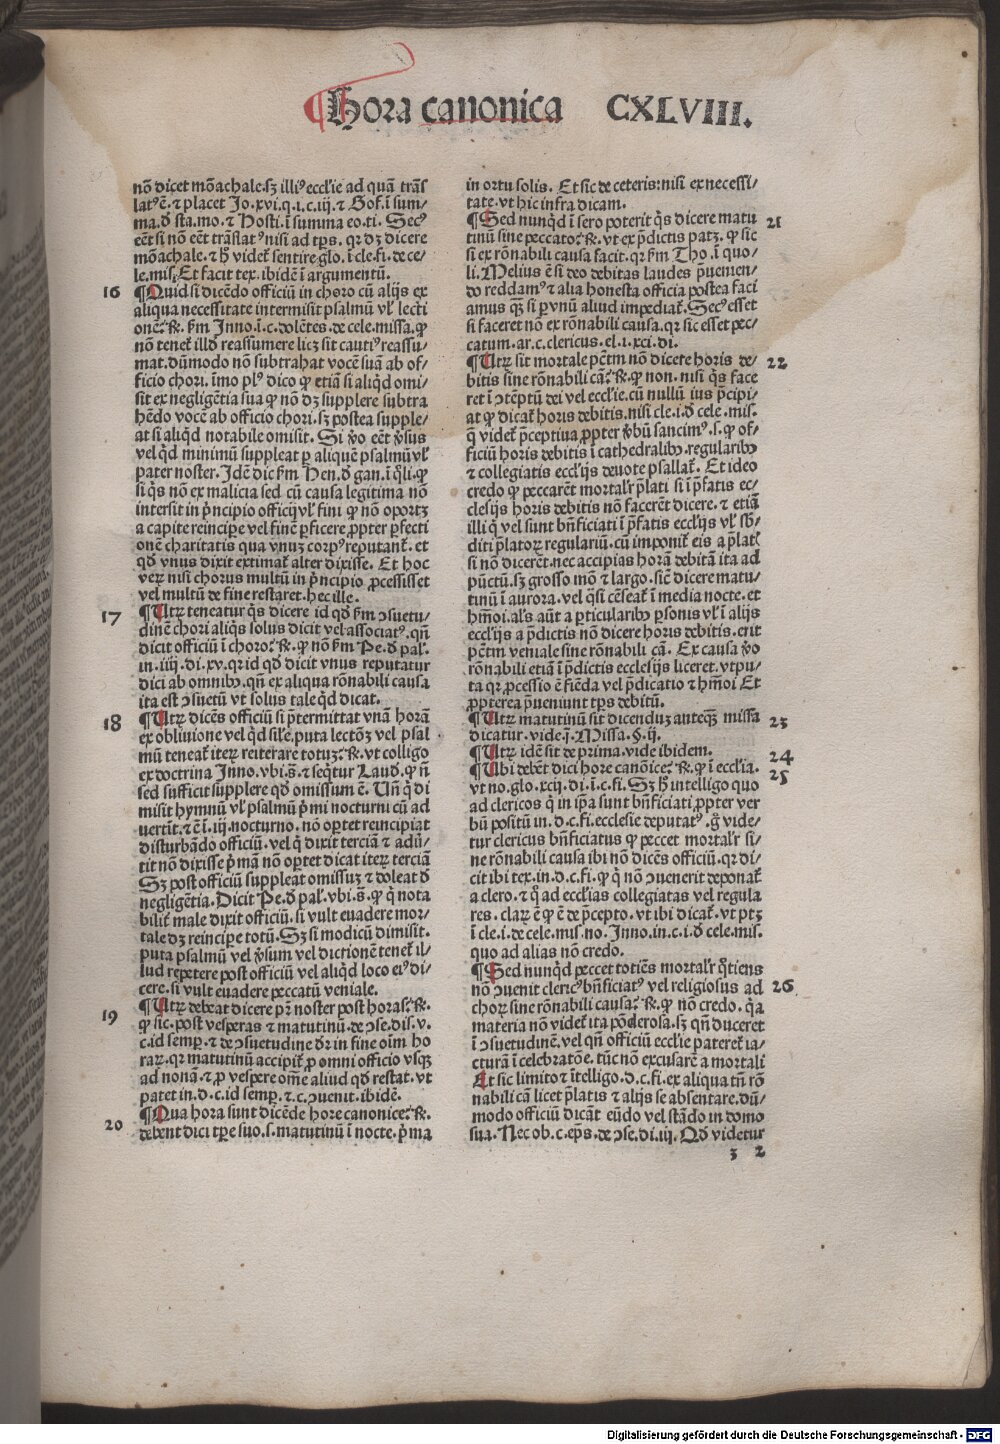 ¶ Hora canonica CXLVIII.
nō dicet mōachale.sꝫ illiꝰ ecclīe ad quā trās/
latꝰē.⁊ placet Jo.xvi.q.i.c.iij.⁊ Gof.ī sum/
ma.đ sta.mo.⁊ Hosti.ī summa eo.ti. Secꝰ
eēt si nō eēt trāslatꝰ nisi ad tps. qr dꝫ dicere
mōachale.⁊ h̄ videt̄ sentire glo.ī cle.fi.de ce/
le.mis. Et facit tex.ibidē ī argumentū.
16 ¶ Quid si dicēdo officiū in choro cū alijs ex
aliqua necessitate intermisit psalmū vl̄ lecti
onē: ꝶ. fm Inno.ī.c.dolētes.de cele.missa.ꝙ
nō tenet̄ illđ reassumere licꝫ sit cautiꝰ reassu/
mat.dūmodo nō subtrahat vocē suā ab of/
ficio chori. īmo plꝰ dico ꝙ etiā si aliqd̄ omi/
sit ex negligētia sua ꝙ nō dꝫ supplere subtra
hēdo vocē ab officio chori.sꝫ postea supple/
at si aliqd̄ notabile omisit. Si v̄o eēt v̄sus
vel qd̄ minimū suppleat ꝑ aliquē psalmū vl̄
pater noster. Idē dic fm Hen.đ gan.ī q̄li.ꝙ
si q̄s nō ex malicia sed cū causa legitima nō
intersit in p̄ncipio officij vl̄ fini ꝙ nō oportꝫ
a capite reincipe vel finē ꝑficere ꝓpter ꝑfecti
onē charitatis qua vnuꝫ corpꝰ reputant̄. et
qđ vnus dixit extimat̄ alter dixisse. Et hoc
veꝝ nisi chorus multū in p̄ncipio ꝓcessisset
vel multū de fine restaret.hec ille.
17 ¶ Utꝝ teneatur q̄s dicere id qđ fm ꝯsuetu/
dinē chori aliq̄s solus dicit vel associatꝰ.qn̄
dicit officiū ī choro: ꝶ.ꝙ nō fm Pe.đ pal.
in.iiij.di.xv.qr id qđ dicit vnus reputatur
dici ab omnibꝰ.qn̄ ex aliqua rōnabili causa
ita est ꝯsuetū vt solus tale qd̄ dicat.
18 ¶ Utꝝ dicēs officiū si p̄termittat vnā horā
ex obliuione vel qd̄ sil̄e.puta lectōꝫ vel psal
mū teneat̄ iteꝝ reiterare totuꝫ: ꝶ.vt colligo
ex doctrina Inno.vbi.s̄.⁊ seq̄tur Lauđ.ꝙ n̄
sed sufficit supplere qđ omissum ē. Un̄ q̄ di
misit hymnū vl̄ psalmū p̄mi nocturni cū ad
uertit.⁊ ē ī.iij.nocturno.nō oꝑtet reincipiat
disturbādo officiū.vel q̄ dixit terciā ⁊ adū/
tit nō dixisse p̄mā nō oꝑtet dicat iteꝝ terciā
Sꝫ post officiū suppleat omissuꝫ ⁊ doleat đ
negligētia. Dicit Pe.đ pal.vbi.s̄.ꝙ q̄ nota
bilit̄ male dixit officiū.si vult euadere mor/
tale dꝫ reincipe totū. Sꝫ si modicū dimisit.
puta psalmū vel v̄sum vel dictionē tenet̄ il/
lud repetere post officiū vel aliqđ loco eiꝰ di/
cere.si vult euadere peccatū veniale.
19 ¶ Utꝝ debeat dicere pr̄ noster post horas: ꝶ.
ꝙ sic.post vesperas ⁊ matutinū.de ꝯse.dis.v.
c.id semp.⁊ de ꝯsuetudine dr̄ in fine oim̄ ho
raꝝ.qr matutinū accipit̄ ꝓ omni officio vsqꝫ
ad nonā.⁊ ꝓ vespere om̄e aliud qđ restat.vt
patet in.d.c.id semp.⁊.c.ꝯuenit.ibidē.
20 ¶ Qua hora sunt dicēde hore canonice: ꝶ.
debent dici tꝑe suo.s.matutinū ī nocte.p̄ma
in ortu solis. Et sic de ceteris:nisi ex necessi/
tate.vt hic infra dicam.
¶ Sed nunqđ ī sero poterit q̄s dicere matu 21
tinū sine peccato: ꝶ.vt ex p̄dictis patꝫ.ꝙ sic
si ex rōnabili causa facit.qr fm Tho.ī quo/
li. Melius ē si deo debitas laudes p̄uenien/
do reddamꝰ ⁊ alia honesta officia postea faci
amus qꝫ si ꝑ vnū aliud impediat̄. Secꝰ esset
si faceret nō ex rōnabili causa.qr sic esset pec/
catum.ar.c.clericus.el.i.xci.di.
¶ Utꝝ sit mortale pctm̄ nō dicere horis de/ 22
bitis sine rōnabili cā: ꝶ.ꝙ non.nisi q̄s face
ret ī ꝯtēptū dei vel ecclīe.cū nullū ius p̄cipi/
at ꝙ dicat̄ horis debitis.nisi cle.i.đ cele.mis.
q̄ videt̄ p̄ceptiua ꝓpter v̄bū sancimꝰ.s.ꝙ of/
ficiū horis debitis ī cathedralibꝰ.regularibꝰ
⁊ collegiatis ecclijs deuote psallat̄. Et ideo
credo ꝙ peccarēt mortalr̄ p̄lati si ī p̄fatis ec/
clesijs horis debitis nō facerēt dicere.⁊ etiā
illi q̄ vel sunt bn̄ficiati ī p̄fatis ecclijs vl̄ sb̄/
diti p̄latoꝝ regulariū.cū imponit̄ eis a p̄lat̄
si nō dicerēt.nec accipias horā debitā ita ad
pūctū.sꝫ grosso mō ⁊ largo.sicē dicere matu/
tinū ī aurora.vel q̄si cēseat̄ ī media nocte.et
hmōi.als̄ aūt a ꝑticularibꝰ ꝑsonis vl̄ ī alijs
ecclijs a p̄dictis nō dicere horis debitis.erit
pctm̄ veniale sine rōnabili cā. Ex causa v̄o
rōnabili etiā ī p̄dictis ecclesijs liceret.vtpu/
ta qr ꝓcessio ē fiēda vel p̄dicatio ⁊ hmōi Et
ꝓpterea p̄ueniunt tps debitū.
¶ Utꝝ matutinū sit dicenduꝫ anteqꝫ missa 23
dicatur.vide.j̄.Missa.§.ij.
¶ Utꝝ idē sit de prima.vide ibidem. 24
¶ Ubi debēt dici hore canōice: ꝶ.ꝙ ī ecclīa. 25
vt no.glo.xcij.di.ī.c.fi. Sꝫ h̄ intelligo quo
ad clericos q̄ in ip̄a sunt bn̄ficiati ꝓpter ver
bū positū in.d.c.fi.ecclesie deputatꝰ.g̊ vide/
tur clericus bn̄ficiatus ꝙ peccet mortalr̄ si/
ne rōnabili causa ibi nō dicēs officiū.qr di/
cit ibi tex.in.d.c.fi.ꝙ q̄ nō ꝯuenerit deponat̄
a clero.⁊ q̄ ad ecclīas collegiatas vel regula
res.claꝝ ē ꝙ ē de p̄cepto.vt ibi dicat̄.vt ptꝫ
ī cle.i.de cele.mis.no.Inno.in.c.i.đ cele.mis.
quo ad alias nō credo.
¶ Sed nunqđ peccet totiēs mortalr̄ q̄tiens
nō ꝯuenit clericꝰ bn̄ficiatꝰ vel religiosus ad 26
choꝝ sine rōnabili causa: ꝶ.ꝙ nō credo.q̄a
materia nō videt̄ ita pōderosa.sꝫ qn̄ duceret
ī ꝯsuetudinē.vel qn̄ officiū ecclīe pateret̄ ia/
cturā ī celebratōe.tūc nō excusarē a mortali
Et sic limito ⁊ ītelligo.d.c.fi.ex aliqua tn̄ rō
nabili cā licet p̄latis ⁊ alijs se absentare.dū/
modo officiū dicāt eūdo vel stādo in domo
sua. Nec ob.c.ep̄s.de ꝯse.di.iij. Qđ videtur
ʒ 2
Digitalisierung gefördert durch die Deutsche Forschungsgemeinschaft - DFG